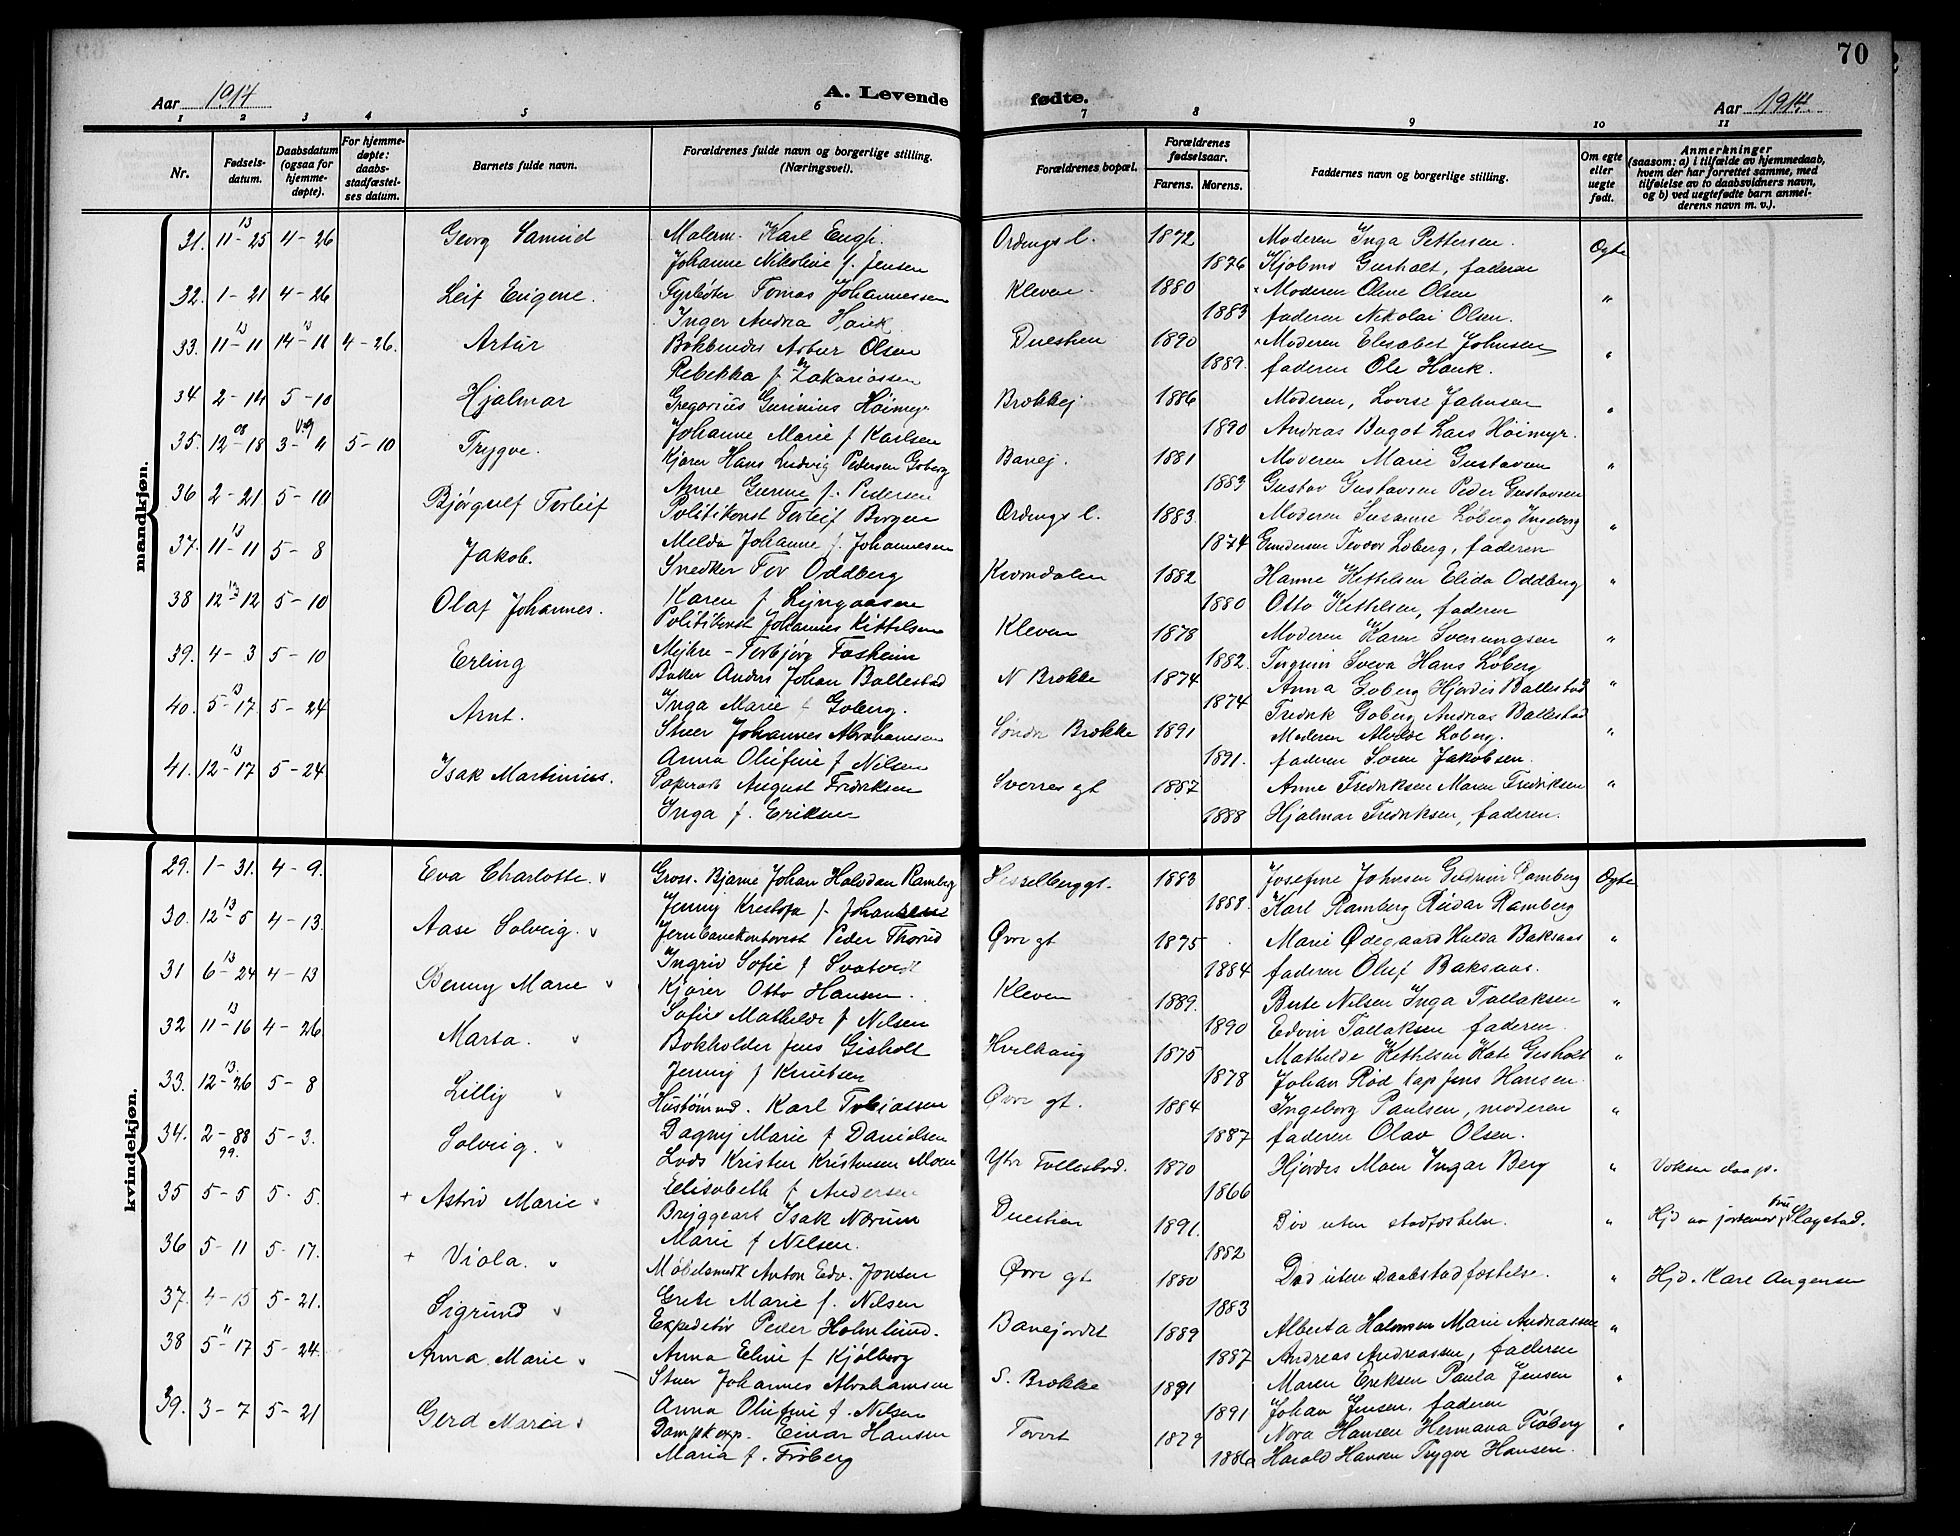 70
Aar 1914 A. Levende fødte. Aar 1914
1 2 3 4 5 6 7 8 9 10 11
Nr. Fødsels-datum. Daabsdatum (ogsaa for hjemme-døpte). For hjemme-døpte: daabs-stadfæstel-ses datum. Barnets fulde navn. Forældrenes fulde navn og borgerlige stilling. (Næringsvei). Forældrenes bopæl. Forældrenes fødselsaar. Farens. Morens. Faddernes navn og borgerlige stilling. Om egte eller uegte født. Anmerkninger (saasom: a) i tilfælde av hjemmedaab, hvem der har forrettet samme, med tilføielse av to daabsvidners navn, og b) ved uegtefødte barn anmel-derens navn m. v.).
mandkjøn.
31. 11-13-25 4-26 Georg Samuel Malerm. Karl Engh. Ordings l. 1872 Moderen Inga Pettersen. Egte
Johanne Nikoline f. Jensen 1876 Gisholt, faderen
32. 1-21 4-26 Leif Eugene. Tomas Johannessen Kleven 1880 Moderen Oline Olsen "
Inger Andrea Hauk 1883 faderen Nikolai Olsen.
33. 11-13-11 14-13-11 4-26. Artur Bokbinder Artur Olsen Duestien 1890 Moderen Elisabet Johnsen "
Rebekka f Zakariassen 1889. faderen Ole Hauk.
34 2-14 5-10 Hjalmar Gregorius Gurinius Høimyr Brækkej 1886 Moderen, Lovise Jahnsen "
Johanne Marie f Karlsen 1890 Andreas Bugot Lars Høimyr.
35. 12-08-18 3-09-11 5-10 Trygve. Kjører Hans Ludvig Pedersen Goberg Banej. 1881 Moderen Marie Gustavsen "
Anne Gurine f. Pedersen 1883 Gustav Gustavsen Peder Gustavsen
36 2-21 5-10 Bjørgulf Torleif Politikonst Torleif Borgen Ordings l. 1883. Moderen Susanne Loberg Ingeborg "
Melda Johanne f. Johannesen 1874 Gundersen Teodor Loberg, faderen
37. 11-13-11 5-8 Jakob. Snedker Tor Oddberg Kvorndalen 1882 Hanne Kittilsen Elida Oddberg "
Karen f Lyngaasen 1880 Otto Kittelsen, faderen
38 12-13-12 5-10 Olaf Johannes. Politikonst Johannes Kittelsen Kleven 1878 Moderen Karen Sverungsen "
Myhre - Torbjørg Foskeim 1882. Torgrim Sveva Hans Loberg
39. 4-3 5-10 Erling Baker Anders Johan Ballestad N Brække 1874 Anna Goberg Hjørdis Ballestad "
Inga Marie f Goberg. 1874 Fredrik Goberg Andreas Ballestad
40. 5-13-17. 5-24 Arnt. Stuer Johannes Abrahamsen Søndr Brække 1891 Moderen Loberg. "
Anna Olufine f Nilsen 1891. faderen Søren Jakobsen.
41. 12-13-17 5-24 Isak Martinius. Papirarb August Fredriksen Sverres gt 1887 Anne Fredriksen Maren Fredriksen "
Inga f. Eriksen 1888 Hjalmar Fredriksen, faderen.
kvindekjøn.
29. 1-31. 4-9. Eva Charlotte. v Gross. Bjarne Johan Halvdan Ramberg Hesselberggt. 1883 Josefine Johnsen Gudrun Ramberg Egte
Jenny Kristofa f. Johansen 1888. Karl Ramberg Reidar Ramberg
30. 12-13-5 4-13. Aase Solveig. v Jernbanekontorist Peder Thorud Øvre gt 1875 Marie Ødegaard Hulda Baksaas "
Ingrid Sofie f Svatvedt 1884 faderen Oluf Baksaas.
31 6-13-24 4-13 Benny Marie v Kjører Otto Hansen. Kleven 1889. Berte Nilsen Inga Tallaksen "
Sofie Mathilde f Nilsen 1890 Edvin Tallaksen faderen.
32 11-13-16 4-26. Marta. v Bokholder Jens Gisholt Hvilhaug 1875 Mathilde Kittilsen Kate Gisholt "
Jenny f Knutsen 1878 Johan Rød Kap Jens Hansen.
33. 12-13-26 5-8 Lilly v Husømmd. Karl Tobiassen Øvre gt. 1884 Ingeborg Paulsen, moderen "
Dagny Marie f Danielsen 1887 faderen Olav Olsen.
34. 2-88 5-3. Solveig. v Lods Kristen Kristensen Moen Ytr Follestad. 1870 Hjørdis Moen Ingar Berg " Voksen daap.
99. Elisabeth f Andersen 1866
35 5-5 5-5. + Astrid Marie v Bryggearb Isak Nærum Duestien 1891. Død uten stadfestelse. " Hjd av jordemor fru Slagstad.
Marie f Nilsen. 1882
36 5-11 5-17. + Viola. v Møbelsmedk Anton Edv. Jonsen Øvre gt 1880 Død uten daabstadfæstelse. " Hjd. Karl Angensen
Grete Marie f. Nilsen 1883
37. 4-15 5-21. Sigrund v Expeditør Peder Holmlund. Banejordet 1889 Alberta Halvorsen Marie Andreassen "
Anna Eline f Kjølberg 1887 Andreas Andreassen, faderen
38 5-11-17 5-24. Anna Marie v Stuer Johannes Abrahamsen S. Brække 1891 Maren Eriksen Paula Jensen "
Anna Olufine f. Nilsen 1891 Johan Jensen, faderen
39. 3-7 5-21 Gerd Maria v Dampskexp. Einar Hansen Torvet 1879 Nora Hansen Hermana Frøberg "
Maria f. Frøberg 1886 Harald Hansen Trygve Hansen.